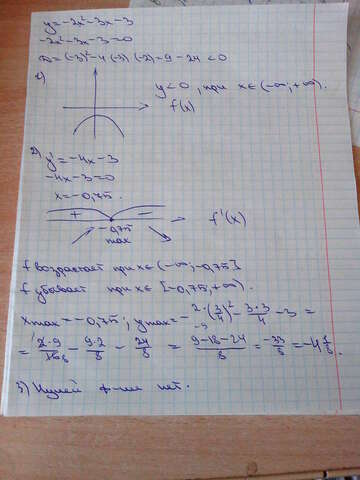 y=-2x²-3x-3
-2x²-3x-3=0
D=(-3)²-4·(-3)·(-2)=9-24<0
1)
y<0, при x∈(-∞;+∞).
f(x)
2) y'=-4x-3
-4x-3=0
x=-0,75.
+ - f'(x)
-0,75
max
f возрастает при x∈(-∞;-0,75]
f убывает при x∈[-0,75;+∞).
xmax=-0,75; ymax=-2·(3/4)²-3·3/4-3=
=2·9/16 8-9·2/8-24/8=9-18-24/8=-33/8=-4 1/8.
3) Нулей ф-ции нет.